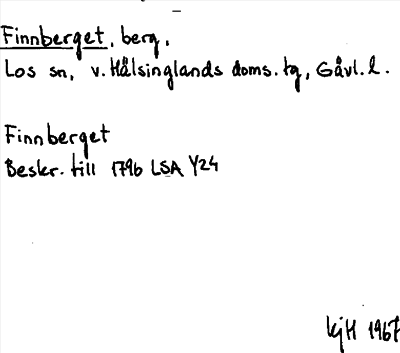 Finnberget, berg,
Los sn, v. Hälsinglands doms. tg, Gävl. l.
Finnberget
Beskr. till 1796 LSA Y24
kjH 1967